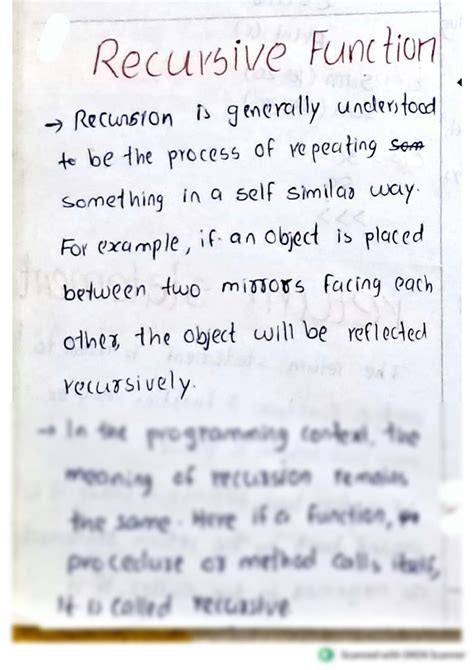 Recursive Function
→ Recursion is generally understood
to be the process of repeating som
something in a self similar way.
For example, if an object is placed
between two mirrors facing each
other, the object will be reflected
recursively.
→ In the programming context, the
meaning of recursion remains
the same. Here if a function,
procedure or method calls itself,
it is called recursive
Scanned with OKEN Scanner